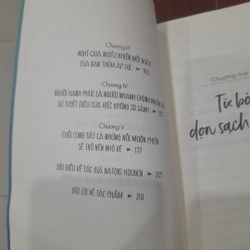 Chương III
NHÉT QUÁ NHIỀU NHIỆM MỖI NGÀY
CỦA BẠN THÊM ÁP LỰC
Chương IV
NGƯỜI HẠNH PHÚC LÀ NGƯỜI NHANH CHÓNG NHẬN RA
SỰ TUYỆT DIỆU CỦA VIỆC KHÔNG SO SÁNH
Chương V
CUỐI CÙNG TẤT CẢ NHỮNG NỖI MUỘN PHIỀN
SẼ TRỞ NÊN NHỎ BÉ • 177
ĐÔI ĐIỀU VỀ TÁC GIẢ NATOKI HOUDEN • 207
ĐÔI LỜI VỀ TÁC PHẨM • 210
Chương mở
Từ bỏ
dọn sạch